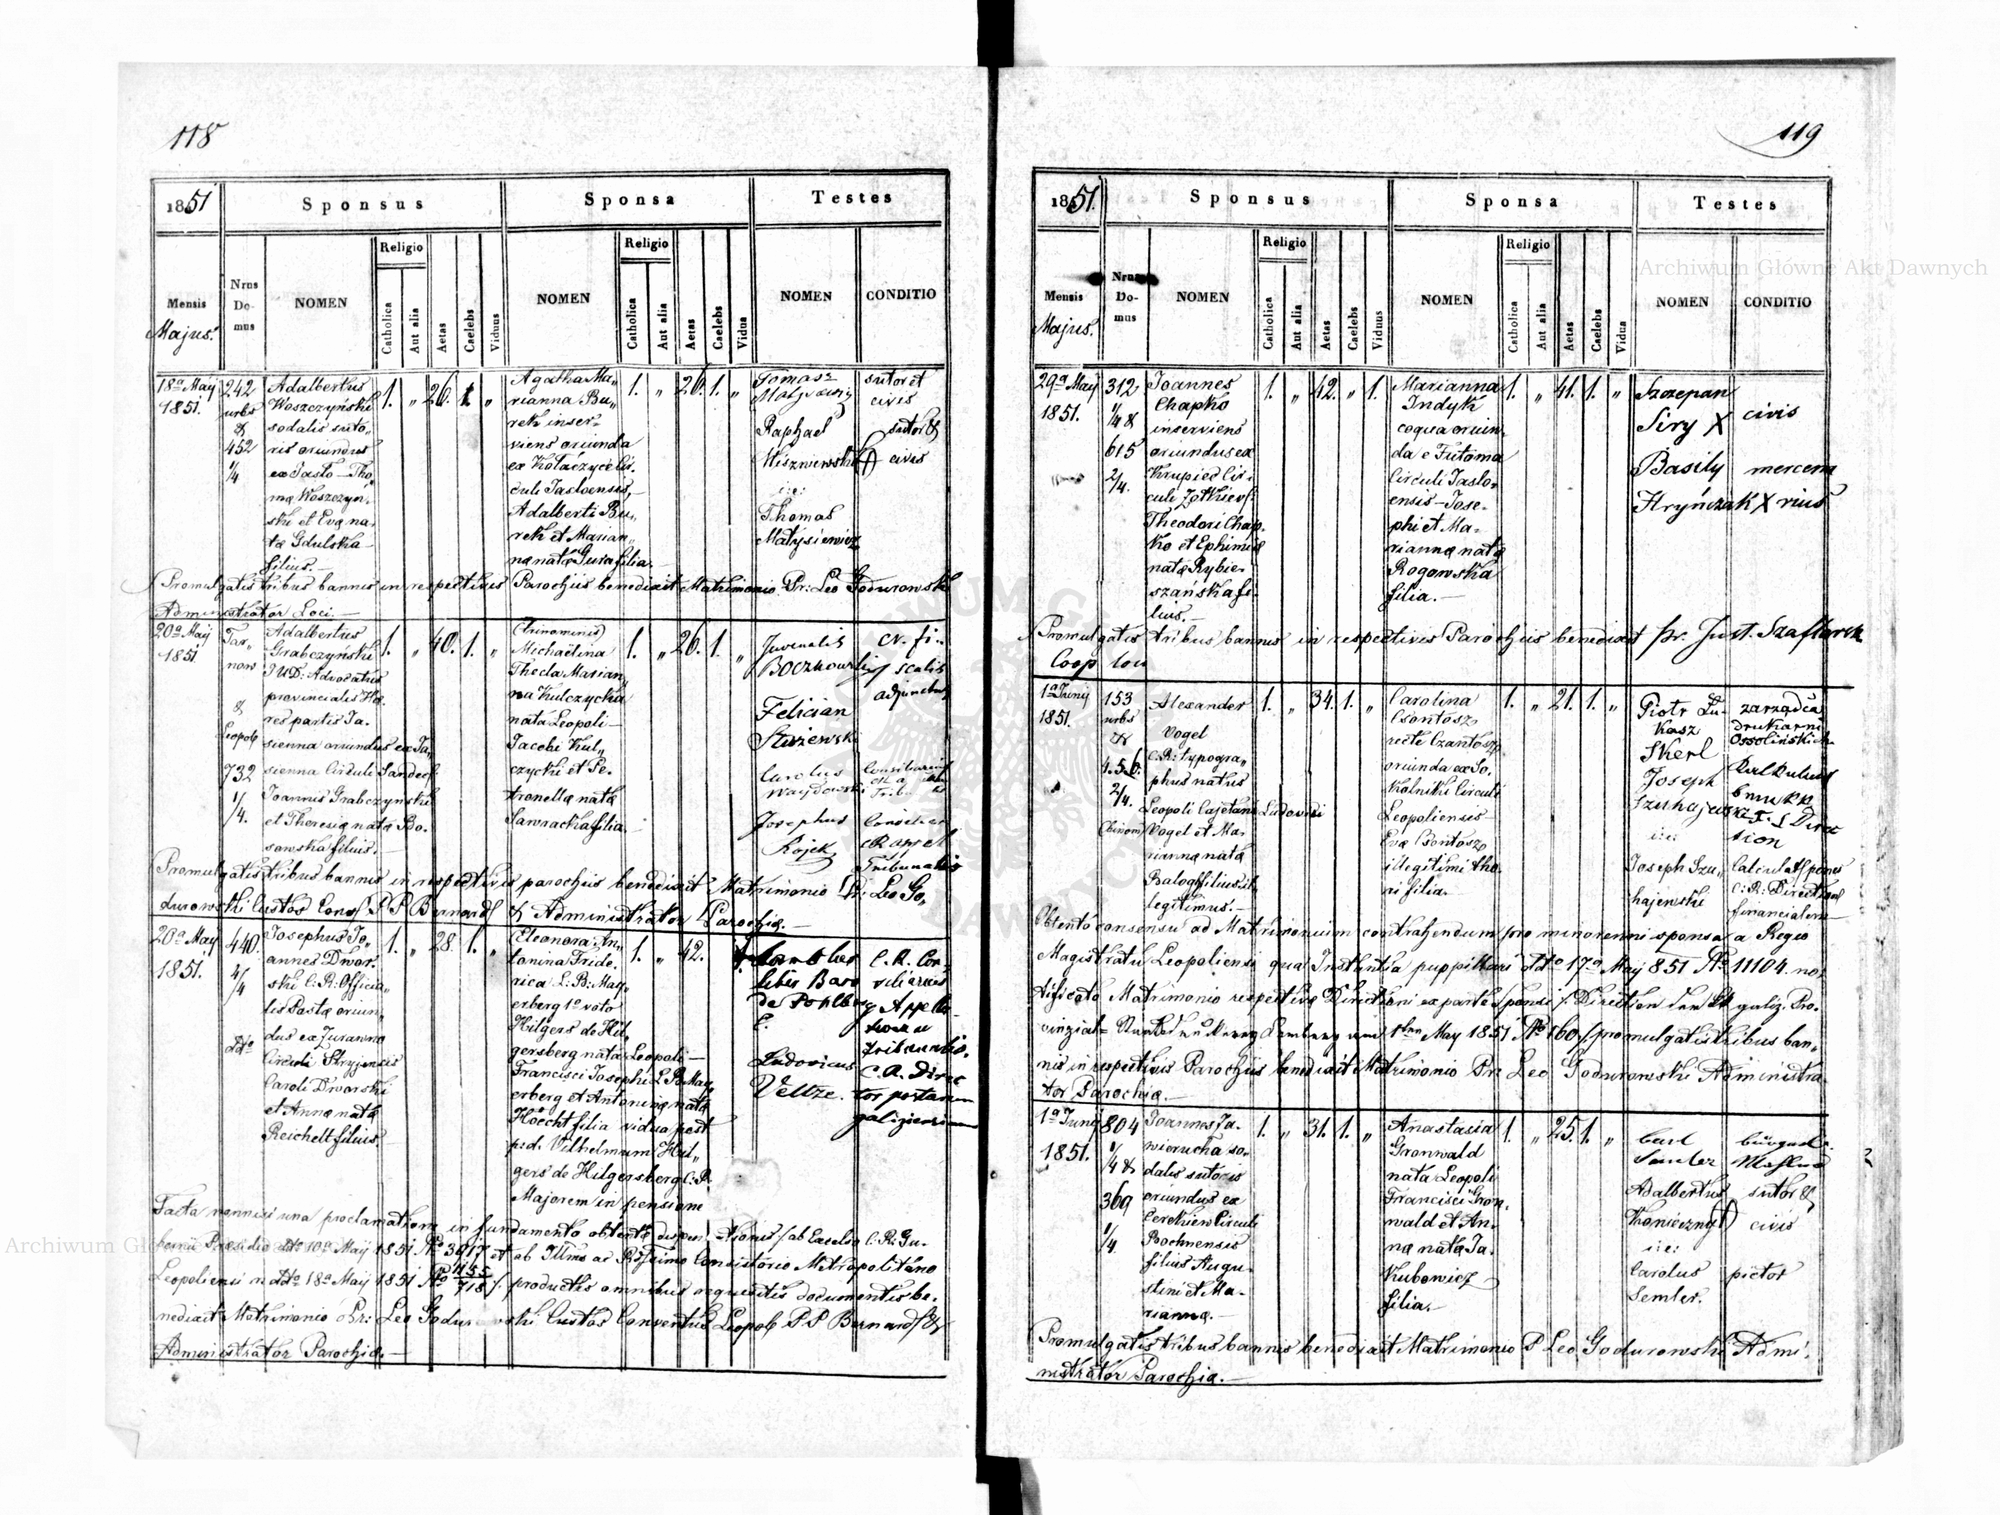 118
1851
Sponsus
Sponsa
Testes
Mensis
Majus.
Nrus Domus
NOMEN
Religio
Catholica
Aut alia
Aetas
Caelebs
Viduus
NOMEN
Religio
Catholica
Aut alia
Aetas
Caelebs
Vidua
NOMEN
CONDITIO
18a May
1851.
242
urbs
&
452
1/4
Adalbertus
Woszczyński
sodalis suto-
ris oriundus
ex Jasło - Tho-
mę Woszczyń-
ski et Evę na-
tę Gdulska
filius.-
1. " 26. 1. "
Agatha Ma-
rianna Bu-
rek inser-
viens oriunda
ex Kołaczyce Cir-
culi Jasloensis,-
Adalberti Bu-
rek et Marian-
nę natę Gura filia.-
1. " 26. 1. "
Tomasz
sutor et
civis
Raphael
Wiszniewski
sutor &
civis
i:e:
Thomas
Matysiewicz
Promulgatis tribus bannis in respectivis Parochiis benedixit Matrimonio Pr: Leo Godurowski
Administrator Loci.-
20a May
1851
Tar-
now
&
Leopol
732
1/4.
Adalbertus
Grabczyński
J.U.D: Advocatus
provincialis Hę-
res partis Ja-
sienna oriundus ex Ja-
sienna Circuli Sandec
Joannis Grabczyński
et Theresię natę Bo-
sowska filius.-
1. " 40. 1. "
(trinominis)
Michaëlina
Thecla Marian-
na Kulczycka
nata Leopoli-
Jacobi Kul-
czycki et Pe-
tronellę natę
Sawracka filia.
1. " 26. 1. "
Juvenalis
Boczkowski
cr. fi-
scalis
adjunctus
Felician
Carolus
Josephus
Rojek
Consiliar
Appel
Tribunalis
Promulgatis tribus bannis in respectivis parochiis benedixit Matrimonio Pr: Leo Go-
durowski Custos Conv. P P Bernard & Administrator Parochię.-
20a May
1851.
440.
4/4
dto
Josephus Jo-
annes Dwor-
ski C:R: Officia-
lis Postę oriun-
dus ex Zurawno
Circuli Stryjensis
Caroli Dworski
et Annę natę
Reichelt filius
1. " 28. 1. "
Eleonora An-
tonina Fride-
rica L:B: May-
erberg 1o voto
Hilgers de Hil-
gersberg nata Leopoli-
Francisci Josephi L.B. May-
erberg et Antoninę natę
Höecht filia vidua post
p:d: Vilhelmum Hil-
gers de Hilgersberg C:R:
Majorem in pensione
1. " 42.
liber Baro
de Pohlberg
C. R. Con-
siliarius
Appella-
tionum
Tribunalis.
Ludovicus
Veltze.
C. R. Direc
tor postarum
galiciensium
Facta nonnisi una proclamatione in fundamento obtentę dispensationis / ab Excelso C. R. Gu-
bernii Pręsidio dto 10a May 1851 No 3917 et ab Illmo ac Rssimo Consistorio Metropolitano
Leopoliensi n dto 18a May 1851 No 1155/718 / productis omnibus requisitis documentis be-
nedixit Matrimonio Pr: Leo Godurowski Custos Conventus Leopol P.P Bernard &
Administrator Parochię.-
119
1851.
Sponsus
Sponsa
Testes
Mensis
Majus.
Nrus Domus
NOMEN
Religio
Catholica
Aut alia
Aetas
Caelebs
Viduus
NOMEN
Religio
Catholica
Aut alia
Aetas
Caelebs
Vidua
NOMEN
CONDITIO
29a May
1851.
312
1/4 &
615
2/4.
Joannes
Chapko
inserviens
oriundus ex
Krupiec Cir-
culi Zołkiev:
Theodori Chap-
ko et Ephimię
natę Rybie-
szańska fi-
lius.
1. " 42. " 1.
Marianna
Indyk
coqua oriun-
da e Futoma
Circuli Jaslo-
ensis - Jose-
phi et Ma-
riannę natę
Rogowska
filia.-
1. " 41. 1. "
Szczepan
Siry X
civis
Basily
Hryńczak X
mercena
rius
Promulgatis tribus bannis in respectivis Parochiis benedixit Pr. Just. Szaflarsk
Coop loci
1a Juny
1851.
153
urbs
&
456.
2/4.
(binom)
Alexander
Vogel
C:R: typogra-
phus natus
Leopoli Cajetani Ludovici
Vogel et Ma-
riannę natę
Balogh filius il-
legitimus.-
1. " 34. 1. "
Carolina
Csontosz
recte Czantosz
oriunda ex So-
kolniki Circuli
Leopoliensis
Evę Csontosz
illegitimi tho-
ri filia.-
1. " 21. 1. "
Piotr Lu-
kasz
Skerl
zarządca
drukarni
Ossolińskich
Joseph
Szuhajewski
i:e:
Joseph Szu-
hajewski
Calculat: penes
C:R: Direction
financialem
Obtento consensu ad Matrimonium contrahendum pro minorenni sponsa a Regio
Magistratu Leopoliensi qua Instantia puppillari dto 17a May 851 No 11104. no-
tificato Matrimonio respectivę Directioni ex parte sponsi /: Direction der galiz. Pro-
vinzial Lemberg am 1ten May 1851 No 160 / promulgatis tribus ban-
nis in respectivis Parochiis benedixit Matrimonio Pr: Leo Godurowski Administra-
tor Parochię.-
1a Juny
1851.
804
1/4 &
369
1/4.
Joannes Ja-
wierucha so-
dalis sutoris
oriundus ex
Cerekiew Circuli
Bochnensis
filius Augu-
stini et Ma-
riannę.-
1. " 31. 1. "
Anastasia
Gronwald
nata Leopoli
Francisci Gron-
wald et An-
nę natę Ja-
kubowicz
filia.-
1. " 25. 1. "
Carl
Semler
Adalbertus
Konieczny
sutor &
civis
i:e:
Carolus
Semler.
pictor
Promulgatis tribus bannis benedixit Matrimonio P Leo Godurowski Admi-
nistrator Parochię.-
Archiwum Główne Akt Dawnych